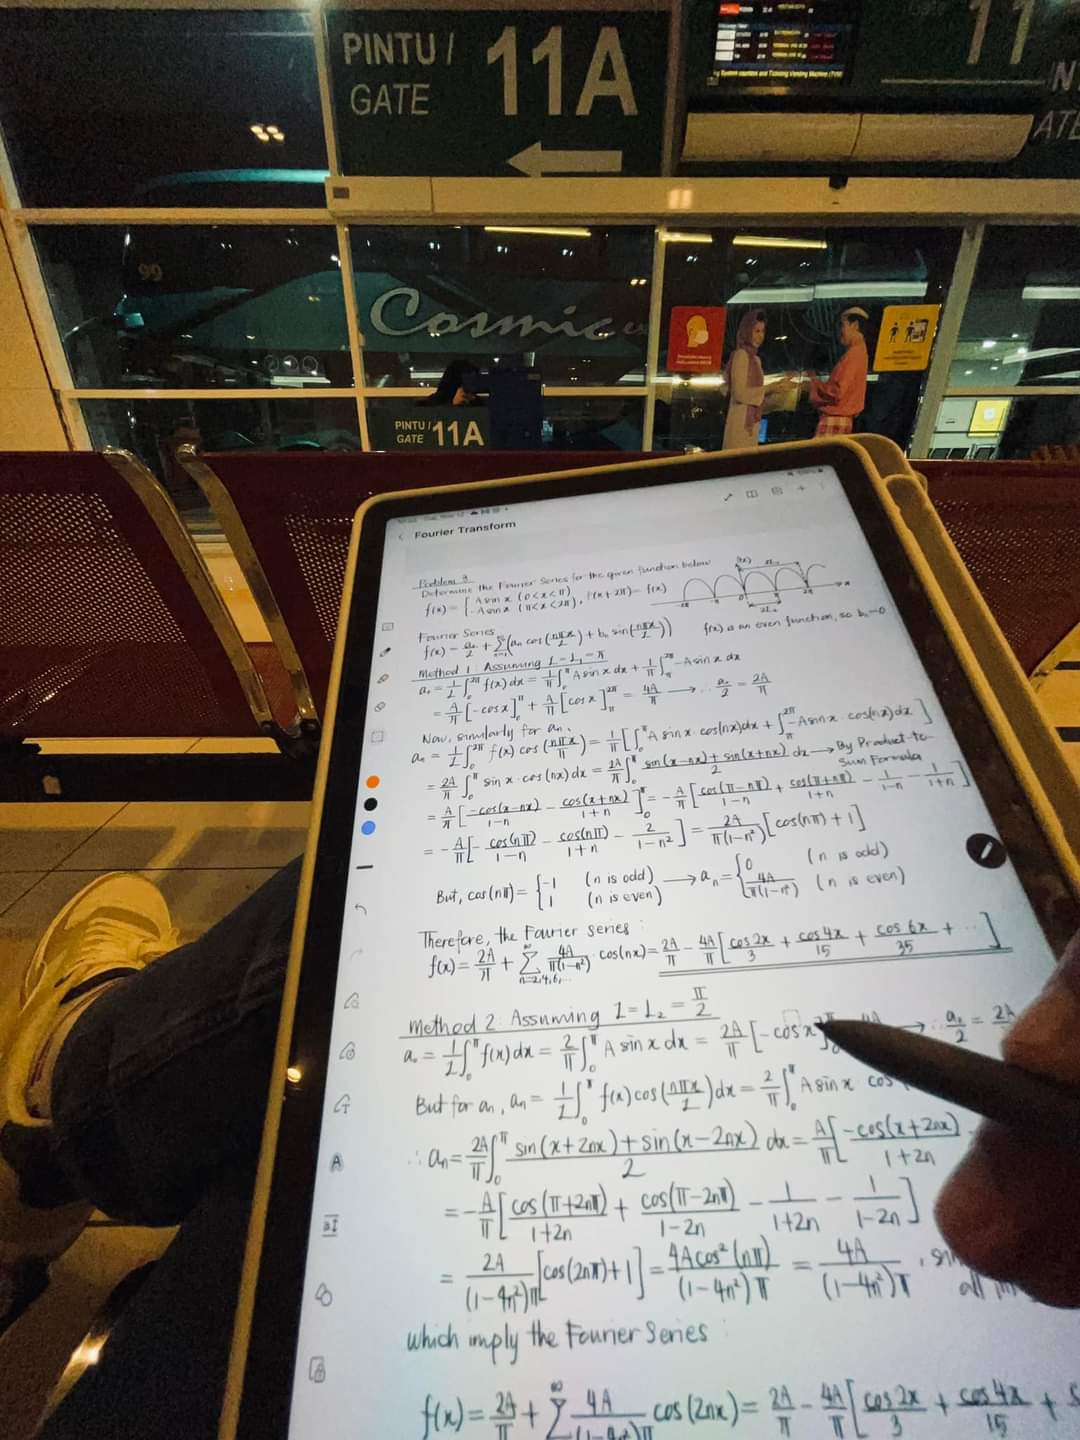 PINTU /
GATE
11A
11
99
Cosmic
PINTU /
GATE 11A
Fourier Transform
Problem
Determine the Fourier Series for the given function below
f(x) = { A sin x (0<x<π)
-A sin x (π<x<2π), f(x+2π) = f(x)
Fourier Series
f(x) = a₀/2 + Σ(aₙ cos(nπx/L) + bₙ sin(nπx/L))
f(x) is an even function, so bₙ=0
Method 1: Assuming L = L₁ = π
a₀ = 1/L ∫₀^2π f(x) dx = 1/π ∫₀^π A sin x dx + 1/π ∫_π^2π -A sin x dx
= A/π [-cos x]₀^π + A/π [cos x]_π^2π = 4A/π → ∴ a₀/2 = 2A/π
Now, similarly for aₙ
aₙ = 1/L ∫₀^2π f(x) cos(nπx/π) = 1/π [∫₀^π A sin x · cos(nx)dx + ∫_π^2π -A sin x · cos(nx)dx]
= 2A/π ∫₀^π sin x · cos(nx) dx = 2A/π ∫₀^π (sin(x-nx) + sin(x+nx))/2 dx → By Product-to-
Sum Formula
= A/π [-cos(x-nx)/(1-n) - cos(x+nx)/(1+n)]₀^π = -A/π [cos(π-nπ)/(1-n) + cos(π+nπ)/(1+n) - 1/(1-n) - 1/(1+n)]
= -A/π [-cos(nπ)/(1-n) - cos(nπ)/(1+n) - 2/(1-n²)] = 2A/(π(1-n²)) [cos(nπ) + 1]
But, cos(nπ) = { -1 (n is odd)
1 (n is even) → aₙ = { 0 (n is odd)
4A/(π(1-n²)) (n is even)
Therefore, the Fourier series:
f(x) = 2A/π + Σ_{n=2,4,6,...}^∞ 4A/(π(1-n²)) · cos(nx) = 2A/π - 4A/π [cos 2x/3 + cos 4x/15 + cos 6x/35 + ...]
Method 2: Assuming L = L₂ = π/2
a₀ = 1/L ∫₀^π f(x) dx = 2/π ∫₀^π A sin x dx = 2A/π [-cos x] → ∴ a₀/2 = 2A
But for aₙ, aₙ = 1/L ∫₀^π f(x) cos(nπx/L) dx = 2/π ∫₀^π A sin x cos
∴ aₙ = 2A/π ∫₀^π (sin(x+2nx) + sin(x-2nx))/2 dx = A/π [-cos(x+2nx)/(1+2n) -
= -A/π [cos(π+2nπ)/(1+2n) + cos(π-2nπ)/(1-2n) - 1/(1+2n) - 1/(1-2n)]
= 2A/((1-4n²)π) [cos(2nπ) + 1] = 4A cos²(nπ)/((1-4n²)π) = 4A/((1-4n²)π),
which imply the Fourier Series
f(x) = 2A/π + Σ^∞ 4A/((1-4n²)π) cos(2nx) = 2A/π - 4A/π [cos 2x/3 + cos 4x/15 +